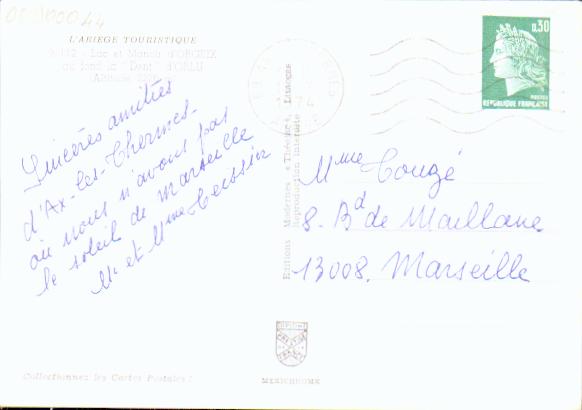 L'ARIEGE TOURISTIQUE
Lac et Manoir d'ORGEIX
au fond la "Dent" d'ORLU
(Altitude
Sincères amitiés
d'Ax-les-Thermes.
où nous n'avons pas
le soleil de Marseille
Mr et Mme
Editions Modernes « Théojac », LIMOGES
Reproduction interdite
74
0,30
POSTES
REPUBLIQUE FRANÇAISE
Mme Couzé
8. Bd de Maillane
13008. Marseille
Collectionnez les Cartes Postales !
MEXICHROME